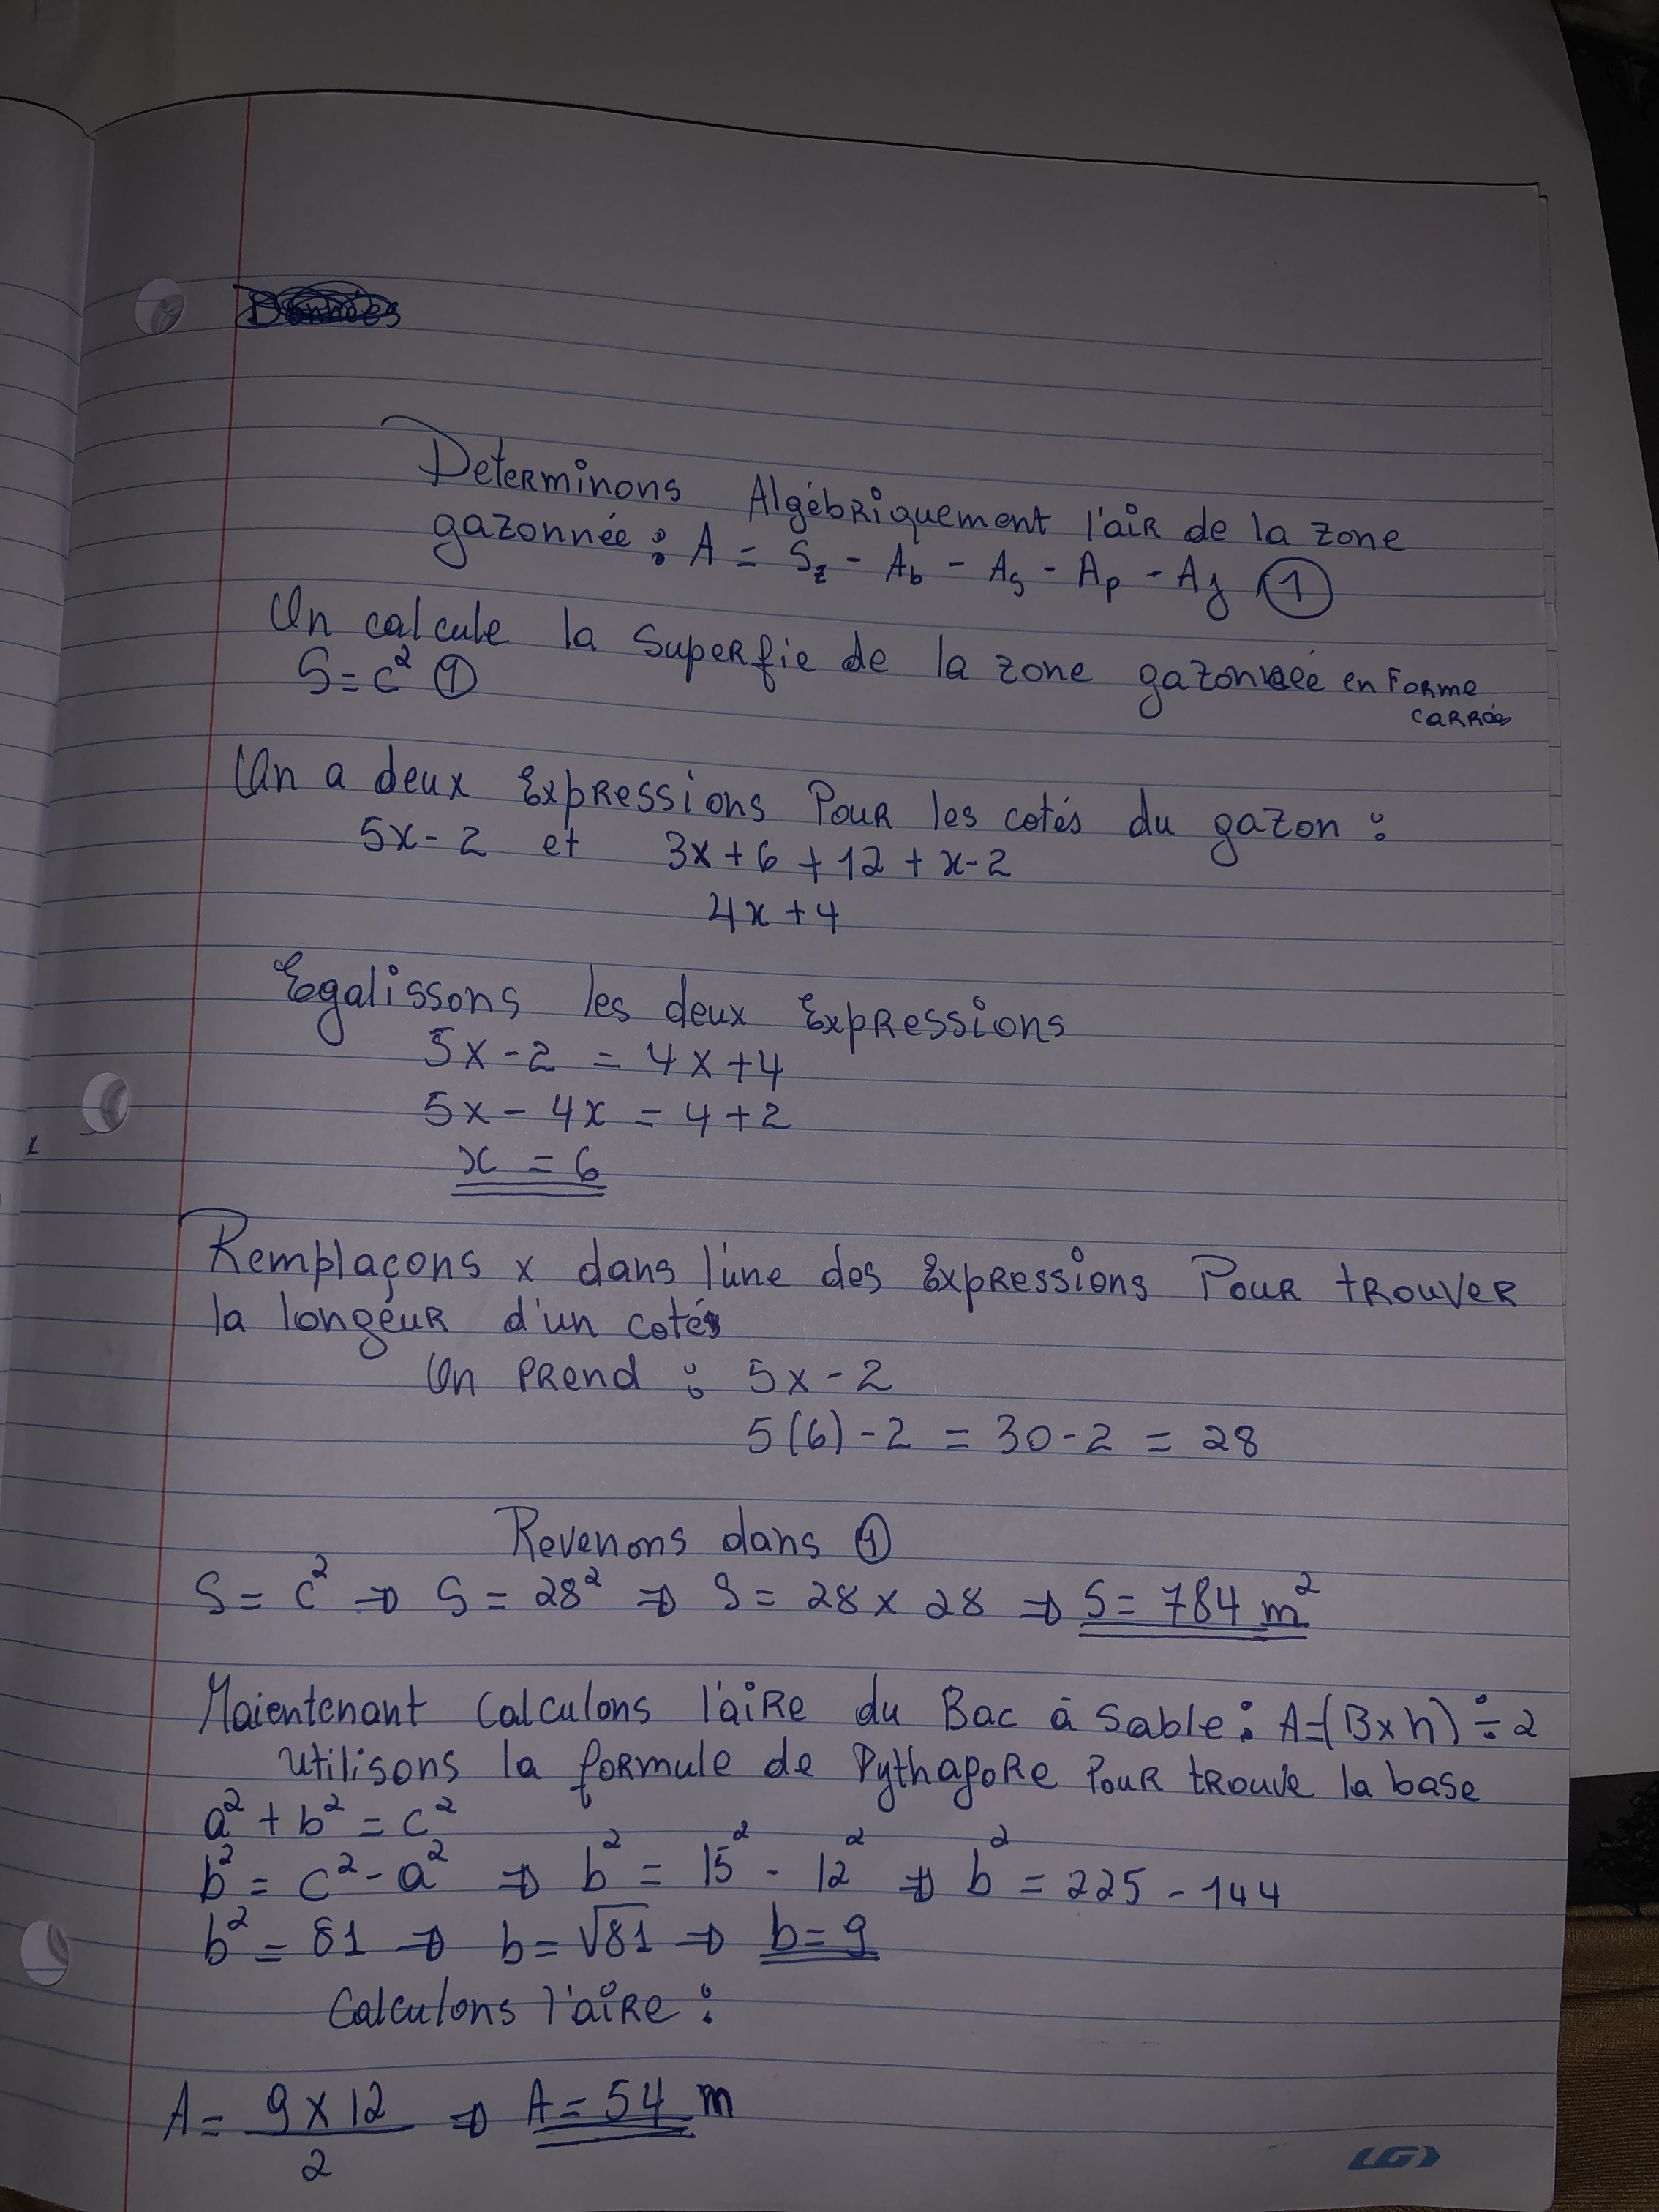 Données
Determinons Algébriquement l'air de la zone
gazonnée : A = Sz - Ab - As - Ap - Aj ①
On calcule la Superfie de la zone gazonnée en Forme
carrée
S = c² ①
On a deux Expressions Pour les cotés du gazon :
5x - 2 et 3x + 6 + 12 + x - 2
4x + 4
Egalissons les deux Expressions
5x - 2 = 4x + 4
5x - 4x = 4 + 2
x = 6
Remplaçons x dans l'une des Expressions Pour trouver
la longeur d'un coté
On Prend : 5x - 2
5(6) - 2 = 30 - 2 = 28
Revenons dans ①
S = c² ⇒ S = 28² ⇒ S = 28 x 28 ⇒ S = 784 m²
Maientenant Calculons l'aire du Bac à Sable : A = (B x h) ÷ 2
Utilisons la formule de Pythagore Pour trouve la base
a² + b² = c²
b² = c² - a² ⇒ b² = 15² - 12² ⇒ b² = 225 - 144
b² = 81 ⇒ b = √81 ⇒ b = 9
Calculons l'aire :
A = 9 x 12 / 2 ⇒ A = 54 m